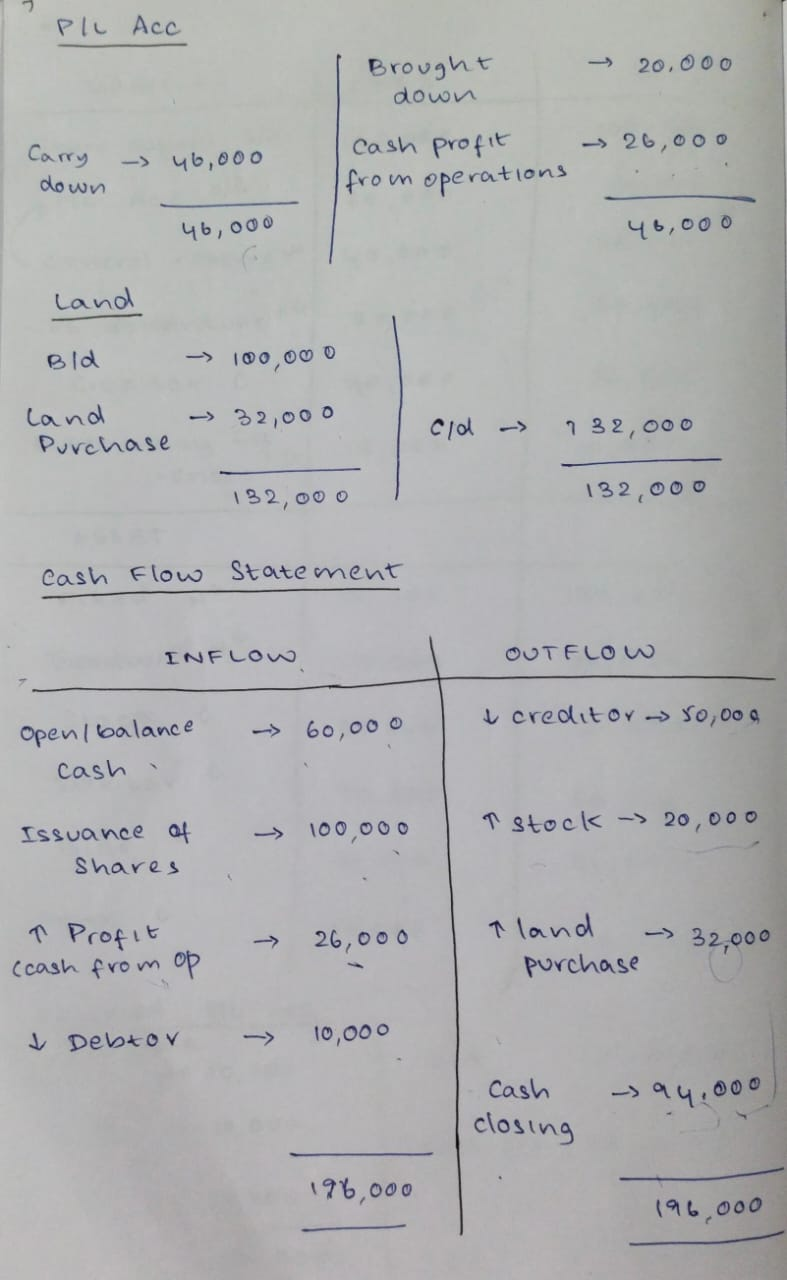 P/L Acc
Brought → 20,000
down
Carry → 46,000
down
Cash profit → 26,000
from operations
46,000
46,000
Land
B/d → 100,000
Land → 32,000
Purchase
C/d → 132,000
132,000
132,000
Cash Flow Statement
INFLOW
OUTFLOW
Open/balance → 60,000
cash
↓ creditor → 50,000
Issuance of → 100,000
Shares
↑ stock → 20,000
↑ Profit → 26,000
(cash from op
↑ land → 32,000
purchase
↓ Debtor → 10,000
Cash → 94,000
closing
196,000
196,000